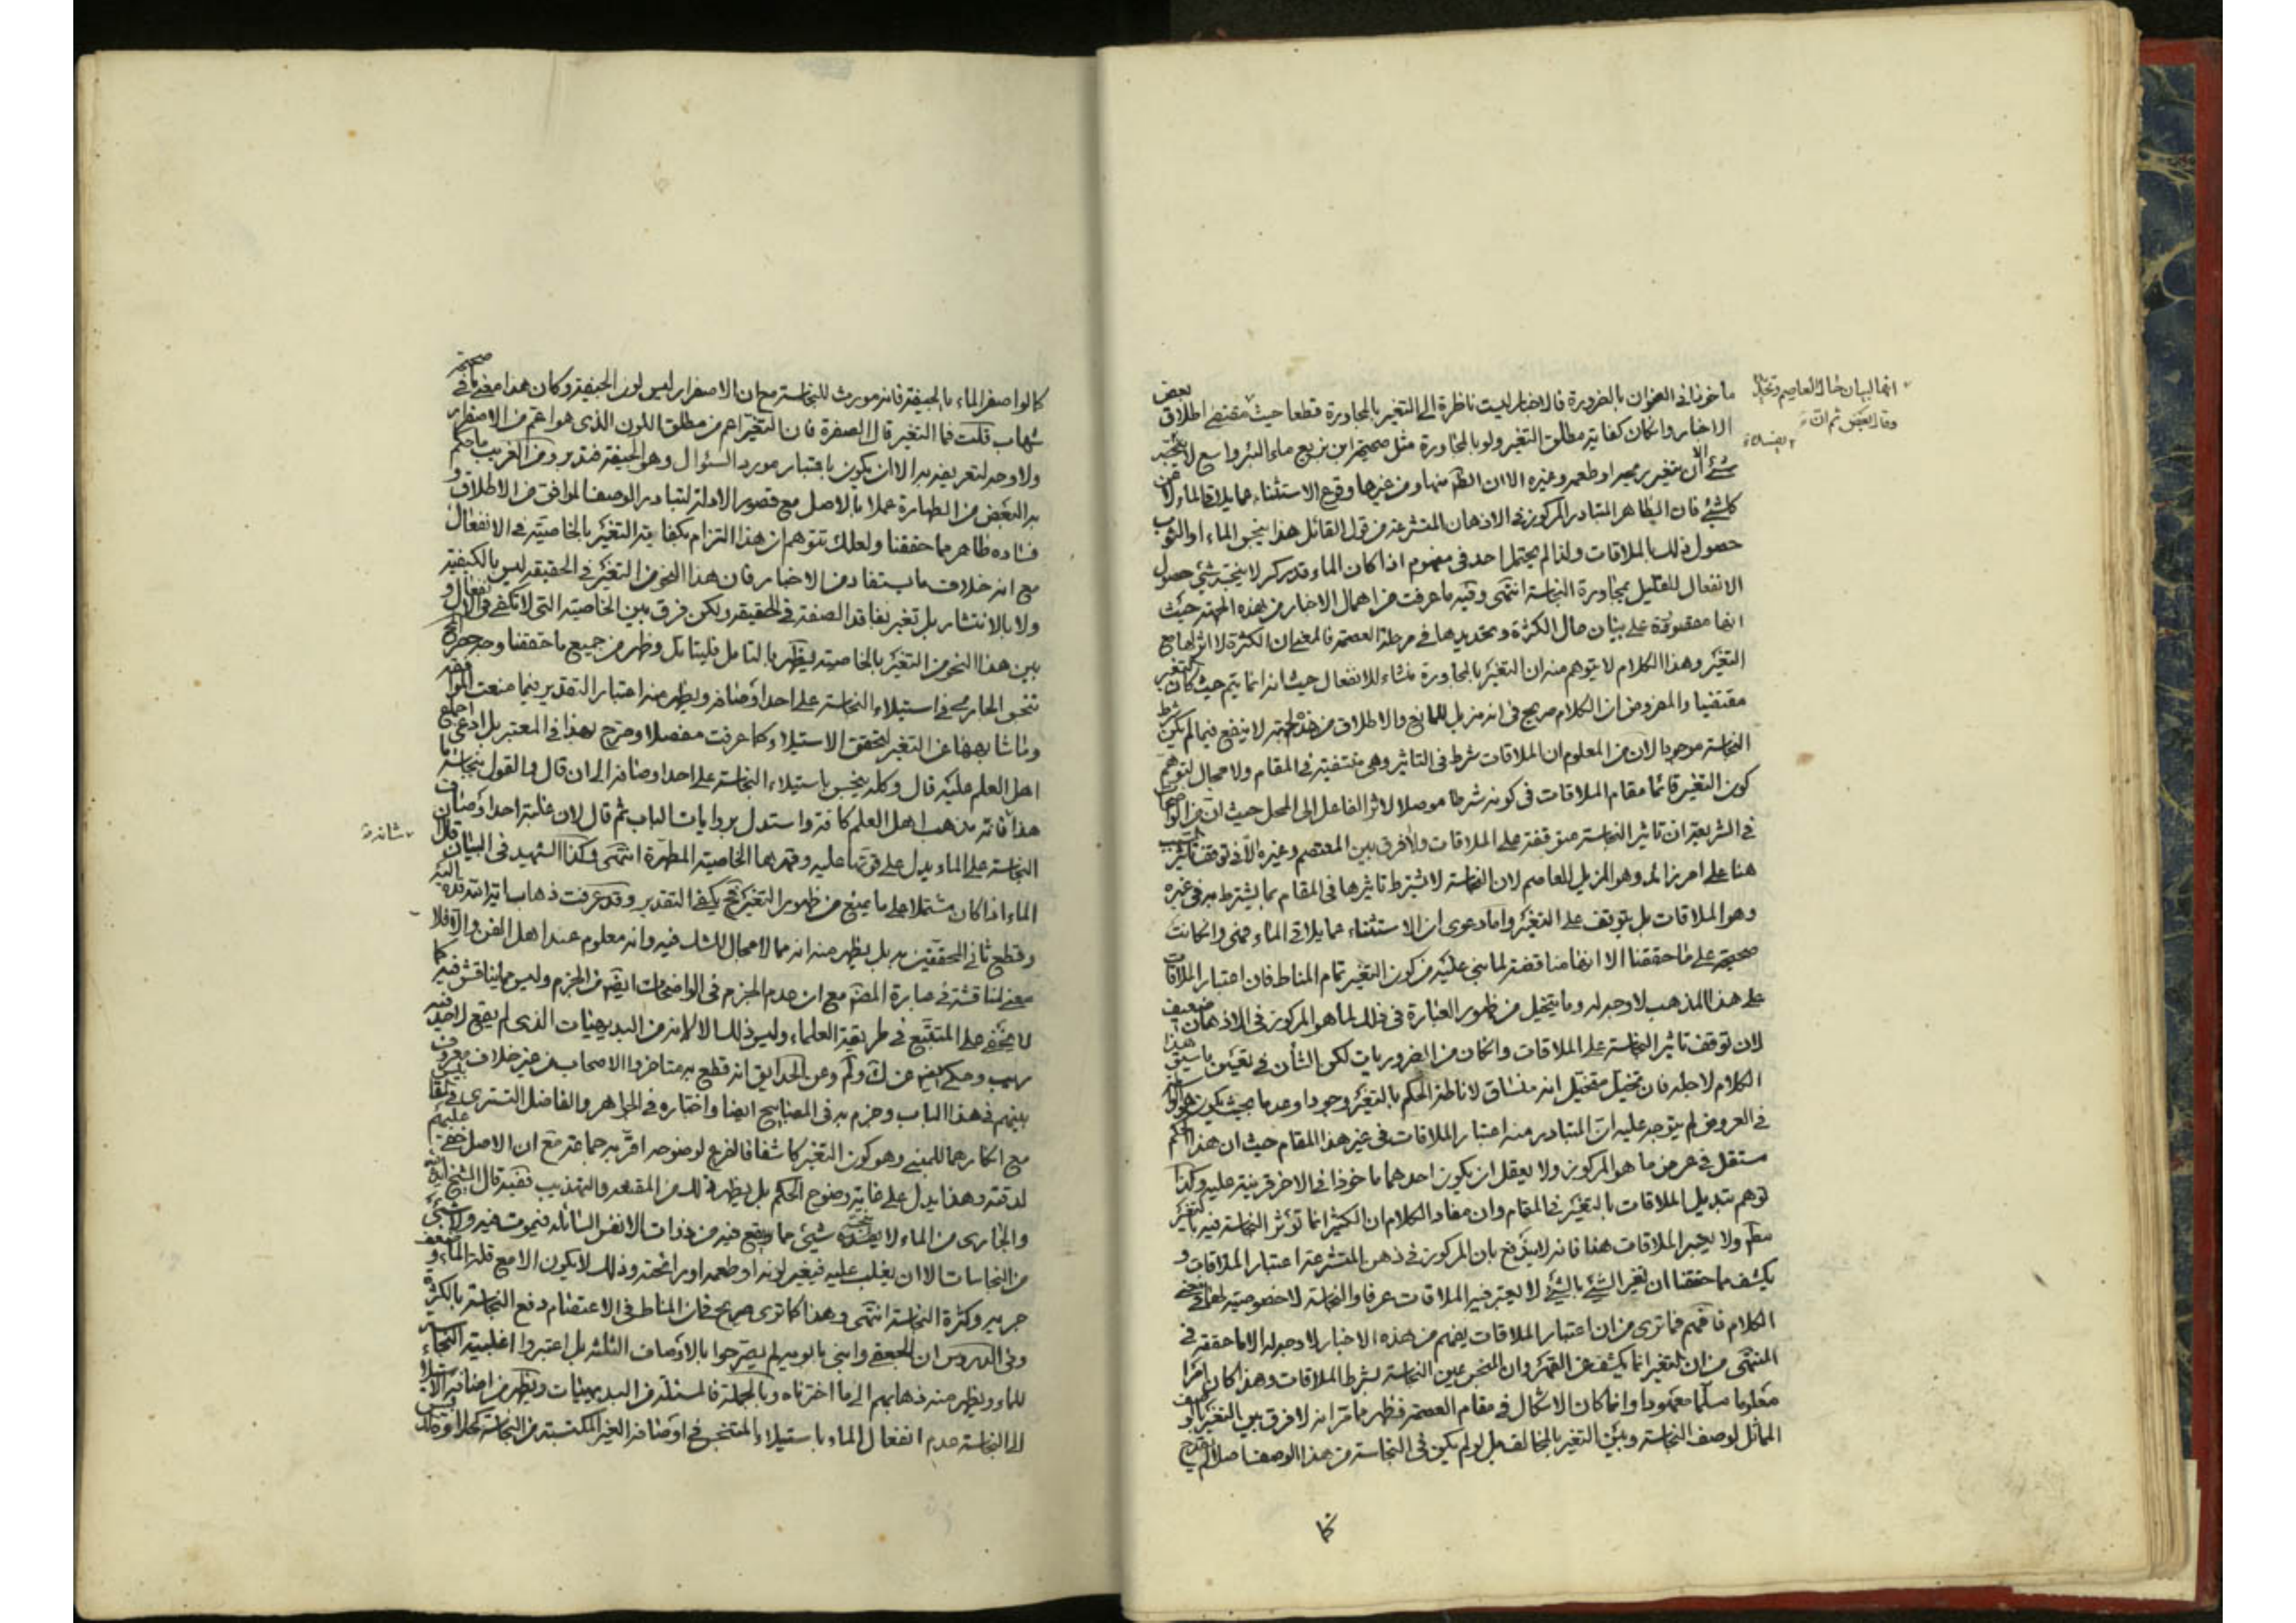 انما لبيان حال العاصم
وقال بعض ثم ان
ماخوذ في العنوان بالضرورة فالاخبار ليست ناظرة الى التغير بالمجاورة قطعا حيث مقتضى اطلاق بعض
الاخبار وان كان كفاية مطلق التغير ولو بالمجاورة مثل صحيحة ابن بزيع ماء البئر واسع لا ينجسه
شئ الا ان يتغير ريحه او طعمه وغيره الا ان الظ منها ومن غيرها وقوع الاستثناء عما يلاقى الماء لا من
كل شئ فان الظاهر المتبادر المركوز في الاذهان المتشرعة من قول القائل هذا ينجس الماء او الثوب
حصول ذلك بالملاقات ولذا لم يحتمل احد في مفهوم اذا كان الماء قدر كر لا ينجسه شئ حصول
الانفعال للقليل بمجاورة النجاسة انتهى وفيه ما عرفت من اهمال الاخبار من هذه الجهة حيث
انها مقصورة على بيان حال الكثرة وتحديدها في مرحلة العصمة فالمعنى ان الكثرة لا اثر لها مع
التغير وهذا الكلام لا يتوهم منه ان التغير بالمجاورة منشاء للانفعال حيث انه انما يتم حيث كان التغير
مقتضيا والمفروض ان الكلام صريح في انه مزيل للمانع والاطلاق من هذه الجهة لا ينفع فيما لم يكن شرط
النجاسة موجودا لان من المعلوم ان الملاقات شرط في التاثير وهي منتفية في المقام ولا مجال لتوهم
كون التغير قائما مقام الملاقات في كونه شرطا موصلا لاثر الفاعل الى المحل حيث ان من الواضحات
في الشريعة ان تاثير النجاسة متوقفة على الملاقات ولا فرق بين المعتصم وغيره الا في توقف تاثير السبب
هنا على امر زائد وهو المزيل للعاصم لان النجاسة لا يشترط تاثيرها في المقام بما يشترط به في غيره
وهو الملاقات بل يتوقف على التغير واما دعوى ان الاستثناء عما يلاقى الماء فهى وان كانت
صحيحة على ما حققنا الا انها مناقضة لما بنى عليه من كون التغير تمام المناط فان اعتبار الملاقات
على هذا المذهب لا وجه له وما يتخيل من ظهور العبارة في ذلك لما هو المركوز في الاذهان ضعيف
لان توقف تاثير النجاسة على الملاقات وان كان من الضروريات لكن الشأن في تعيين ما سيق هذا
الكلام لاجله فان تخيل متخيل انه منساق لاناطة الحكم بالتغير وجودا وعدما بحيث يكون هو الواسطة
في العروض لم يتوجه عليه ان المتبادر منه اعتبار الملاقات في غير هذا المقام حيث ان هذا الحكم
مستقل في عرض ما هو المركوز ولا يعقل ان يكون احدهما ماخوذا في الاخر قرينة عليه وكذا
توهم تبديل الملاقات بالتغير في المقام وان مفاد الكلام ان الكثير انما تؤثر النجاسة فيه بالتغير
مطم ولا يعتبر الملاقات هنا فانه لا يندفع بان المركوز في ذهن المتشرعة اعتبار الملاقات و
يكشف ما حققنا ان تغير الشئ بالشئ لا يعتبر فيه الملاقات عرفا والنجاسة لا خصوصية لها
الكلام فافهم فما ترى من ان اعتبار الملاقات يفهم من هذه الاخبار لا وجه له الا ما حققه في
المنتهى من ان التغير انما يكشف عن القهر وان المنجس عين النجاسة بشرط الملاقات وهذا كان امرا
معلوما مسلما معهودا وانما كان الاشكال في مقام العصمة فظهر مما مر انه لا فرق بين التغير بالوصف
المماثل لوصف النجاسة وبين التغير بالمخالف بل لو لم يكن في النجاسة من هذا الوصف اصلا لم يقدح
كما
كما لو اصفر الماء بالجيفة فانه مورث للنجاسة مع ان الاصفرار ليس لون الجيفة وكان هذا معنى ما في صحيحة
شهاب قلت فما التغير قال الصفرة فان التغير اعم من مطلق اللون الذى هو اعم من الاصفرار
ولا وجه لتعريفه به الا ان يكون باعتبار مورد السئوال وهو الجيفة فتدبر ومن الغريب ما حكم
به البعض من الطهارة عملا بالاصل مع قصور الادلة لتبادر الوصف الموافق من الاطلاق و
فساده ظاهر مما حققنا ولعلك تتوهم ان هذا التزام بكفاية التغير بالخاصية في الانفعال
مع انه خلاف ما يستفاد من الاخبار فان هذا النحو من التغير في الحقيقة ليس بالكيفية
ولا بالانتشار بل تغير بفاقد الصفة في الحقيقة ولكن فرق بين الخاصية التي لا تكفى في الانفعال و
بين هذا النحو من التغير بالخاصية يظهر بالتامل فليتامل وظهر من جميع ما حققنا وجه
تنجس الجارى في استيلاء النجاسة على احد اوصافه ويظهر منه اعتبار التقدير فيما منعت
وما شابهها عن التغير لتحقق الاستيلاء كما عرفت مفصلا وصرح بهذا في المعتبر بل ادعى اجماع
اهل العلم عليه قال وكله ينجس باستيلاء النجاسة على احد اوصافه الى ان قال والقول بنجاسة
هذا فانه مذهب اهل العلم كافة واستدل بروايات الباب ثم قال لان غلبة احد اوصاف
النجاسة على الماء يدل على قوتها عليه وقهرها الخاصية المطهرة انتهى وكذا الشهيد في البيان قال
الماء اذا كان مشتملا على ما يمنع من ظهور التغير ح يكفى التقدير وقد عرفت ذهاب اية الله قده اليه
وقطع ثاني المحققين به بل يظهر منه انه مما لا مجال للشك فيه وانه معلوم عند اهل الفن والا فلا
معنى لمناقشة في عبارة المص مع ان عدم الجزم في الواضحات ايض من الجزم وليس مما يناقش فيه كما
لا يخفى على المتتبع في طريقة العلماء وليس ذلك الا لانه من البديهيات الذى لم يقع لاحد فيه
ريب وحكى ايض عن ك ولم وعن الحدايق انه قطع به متاخروا الاصحاب من غير خلاف معروف
بينهم في هذا الباب وجزم به في المصابيح ايضا واختاره في الجواهر والفاضل التسترى في
مع انكارهما للمبنى وهو كون التغير كاشفا فالفرع لوضوحه اقر به جماعة مع ان الاصل خفى عليهم
لدقته وهذا يدل على غاية وضوح الحكم بل يظهر ذلك من المقنعه والتهذيب ففيه قال الشيخ
والجارى من الماء لا ينجسه شئ مما يقع فيه من ذوات الانفس السائله فيموت فيه ولا شئ
من النجاسات الا ان يغلب عليه فيغير لونه او طعمه او رائحته وذلك لا يكون الا مع قلة الماء و ضعف
جريه وكثرة النجاسة انتهى وهذا كما ترى صريح في ان المناط في الاعتصام دفع النجاسة بالكثرة
وفي الدروس ان الجعفى وابنى بابويه لم يصرحوا بالاوصاف الثلثه بل اعتبروا اغلبية النجاسة
للماء ويظهر منه ذهابهم الى ما اخترناه وبالجملة فالمسئله من البديهيات ويظهر من اضافة الاستيلاء
الى النجاسة عدم انفعال الماء باستيلاء المتنجس في اوصافه الغير المكتسبة من النجاسة